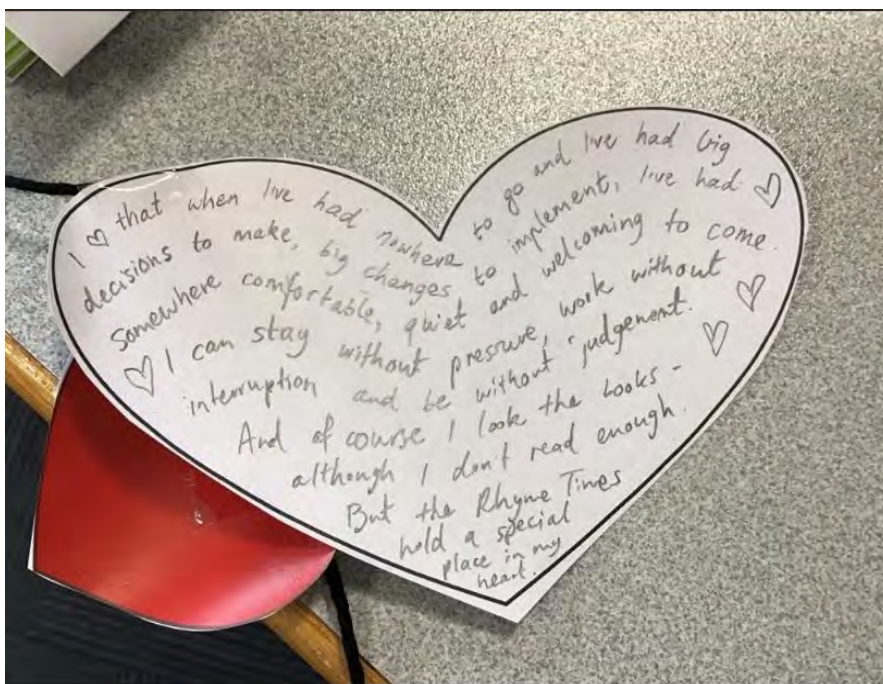 I ♡ that when I've had nowhere to go and I've had big
decisions to make, big changes to implement, I've had
somewhere comfortable, quiet and welcoming to come.
I can stay without pressure, work without
interruption and be without judgement.
And of course I the books -
although I don't read enough.
But the Rhyme Times
hold a special
place in my
heart.